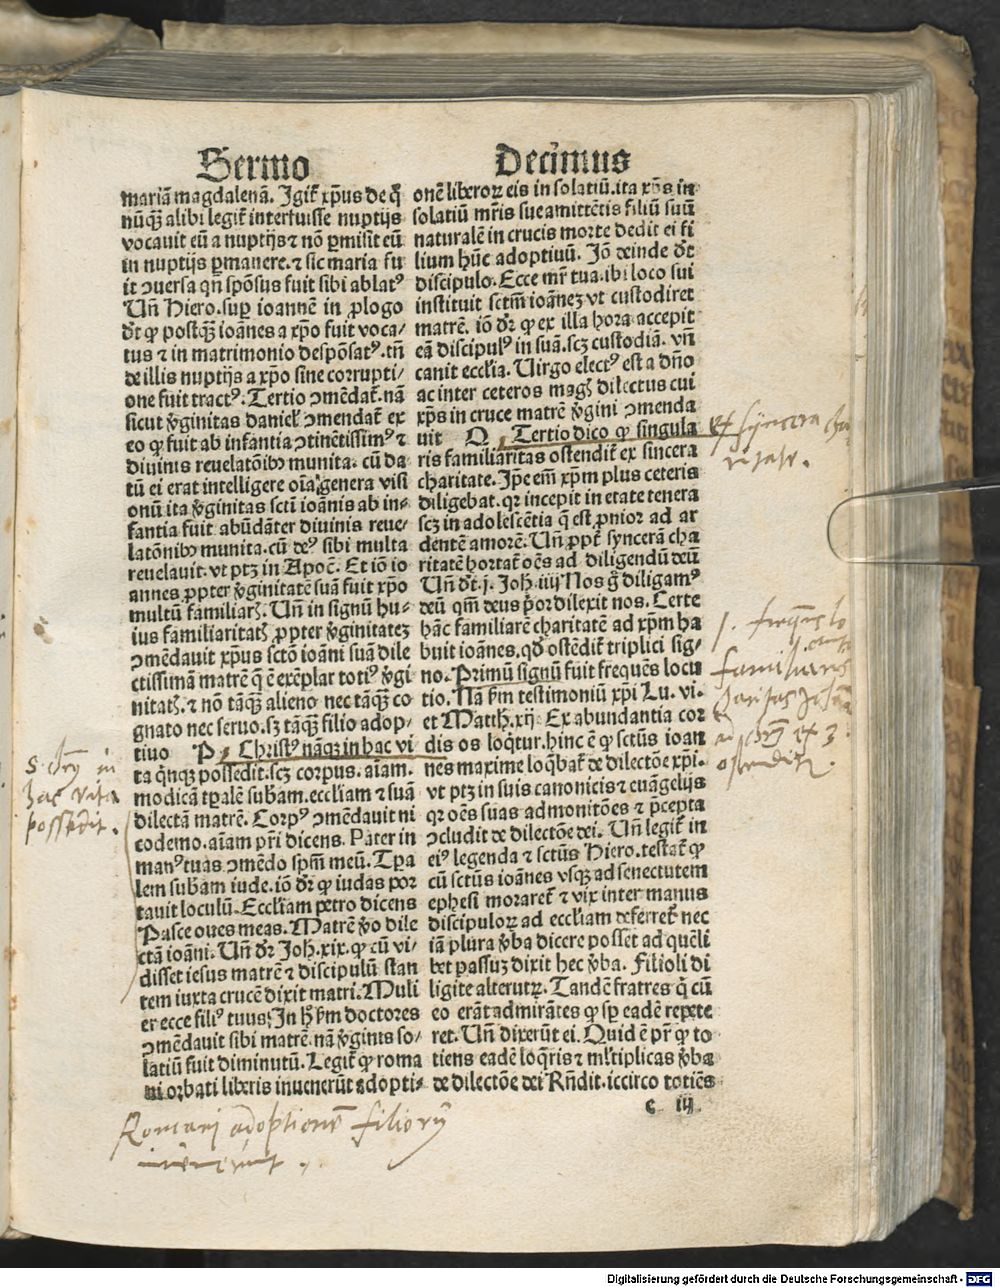 Sermo
mariā magdalenā. Igit̄ xp̄us de q̄
nūqꝫ alibi legit̄ interfuisse nuptijs
vocauit eū a nuptijs ⁊ nō ꝑmisit eū
in nuptijs ꝑmanere. ⁊ sic maria fu
it ꝯuersa qn̄ spōsus fuit sibi ablatꝰ
Vn̄ Hiero. suꝑ ioannē in ꝓlogo
dr̄ ꝙ postqꝫ̄ ioānes a xp̄o fuit voca/
tus ⁊ in matrimonio despōsatꝰ. tn̄
de illis nuptijs a xp̄o sine corrupti/
one fuit tractꝰ. Tertio ꝯmēdat̄. nā
sicut v̄ginitas daniel̓ ꝯmendat̄ ex
eo ꝙ fuit ab infantia ꝯtinētissimꝰ ⁊
diuinis reuelatōibꝰ munita. cū da
tū ei erat intelligere oīa genera visi
onū ita v̄ginitas scti ioānis ab in/
fantia fuit abūdāter diuinis reue/
latōnibꝰ munita. cū deꝰ sibi multa
reuelauit. vt ptꝫ in Apoc̄. Et iō io
annes ꝓpter v̄ginitatē suā fuit xp̄o
multū familiarꝭ. Vn̄ in signū hu/
ius familiaritatꝭ ꝓpter v̄ginitateꝫ
ꝯmēdauit xp̄us sctō ioāni suā dile
ctissimā matrē q̄ ē exēplar totiꝰ v̄gi
nitatꝭ. ⁊ nō tāqꝫ̄ alieno nec tāqꝫ̄ co
gnato nec seruo. sꝫ tāqꝫ̄ filio adop/
tiuo P Christꝰ nāqꝫ in hac vi
ta qͥnqꝫ possedit. scꝫ corpus. aīam.
modicā tꝑalē subāam. eccl̓iam ⁊ suā
dilectā matrē. Corpꝰ ꝯmēdauit ni
codemo. aīam pr̄i dicens. Pater in
manꝰ tuas ꝯmēdo spm̄ meū. Tꝑa
lem subām iude. iō dr̄ ꝙ iudas por
tauit loculū. Eccl̓iam petro dicens
Pasce oues meas. Matrē v̄o dile
ctā ioāni. Vn̄ dr̄ Joh̄. xix. ꝙ cū vi/
disset iesus matrē ⁊ discipulū stan
tem iuxta crucē dixit matri. Muli
er ecce filiꝰ tuus. In h̄ ẜm doctores
ꝯmēdauit sibi matrē. nā v̄ginis so/
latiū fuit diminutū. Legit̄ ꝙ roma
ni orbati liberis inuenerūt adopti/
Decimus
onē liberoꝝ eis in solatiū. ita xp̄s in
solatiū mr̄is sue amittētis filiū suū
naturalē in crucis morte dedit ei fi
lium hūc adoptiuū. Iō deinde dr̄t
discipulo. Ecce mr̄ tua. ibi loco sui
instituit sctm̄ ioāneꝫ vt custodiret
matrē. iō dr̄ ꝙ ex illa hora accepit
eā discipulꝰ in suā. scꝫ custodiā. vn̄
canit eccl̓ia. Virgo electꝰ est a dn̄o
ac inter ceteros magꝭ dilectus cui
xp̄s in cruce matrē v̄gini ꝯmenda
uit Q Tertio dico ꝙ singula
ris familiaritas ostendit̄ ex sincera
charitate. Ip̄e em̄ xp̄m plus ceteris
diligebat. qr incepit in etate tenera
scꝫ in adolescētia q̄ est ꝓnior ad ar
dentē amorē. Vn̄ ꝓpt̄ syncerā cha
ritatē hortat̄ oēs ad diligendū deū
Vn̄ dr̄t. j. Joh̄. iiij Nos g̊ diligamꝰ
deū qm̄ deus p̄or dilexit nos. Certe
hāc familiarē charitatē ad xp̄m ha
buit ioānes. qd̓ ostēdit̄ triplici sig/
no. Primū signū fuit frequēs locu
tio. Nā ẜm testimoniū xp̄i Lu. vi.
et Matth̄. xij. Ex abundantia cor
dis os loqͥtur. hinc ē ꝙ sctūs ioan
nes maxime loq̄bat̄ de dilectōe xp̄i.
vt ptꝫ in suis canonicis ⁊ euāgelijs
qr oēs suas admonitōes ⁊ p̄cepta
ꝯcludit de dilectōe dei. Vn̄ legit̄ in
eiꝰ legenda ⁊ sctūs Hiero. testat̄ ꝙ
cū sctūs ioānes vsqꝫ ad senectutem
ephesi moraret̄ ⁊ vix inter manus
discipuloꝝ ad eccl̓iam deferret̄ nec
iā plura v̄ba dicere posset ad quēli
bet passuꝫ dixit hec v̄ba. Filioli di
ligite alterutꝝ. Tandē fratres qͥ cū
eo erāt admirātes ꝙ sꝑ eadē repete
ret. Vn̄ dixerūt ei. Quid ē pr̄ ꝙ to
tiens eadē loq̄ris ⁊ ml̓tiplicas v̄ba
de dilectōe dei Rn̄dit. iccirco totiēs
c iij
et syncera cha
ritate.
1. frequēs lo
familiaris
ostendit̄.
in
hac vita
possedit.
Romani adoptionem filiorū
inuenerunt.
Digitalisierung gefördert durch die Deutsche Forschungsgemeinschaft - DFG